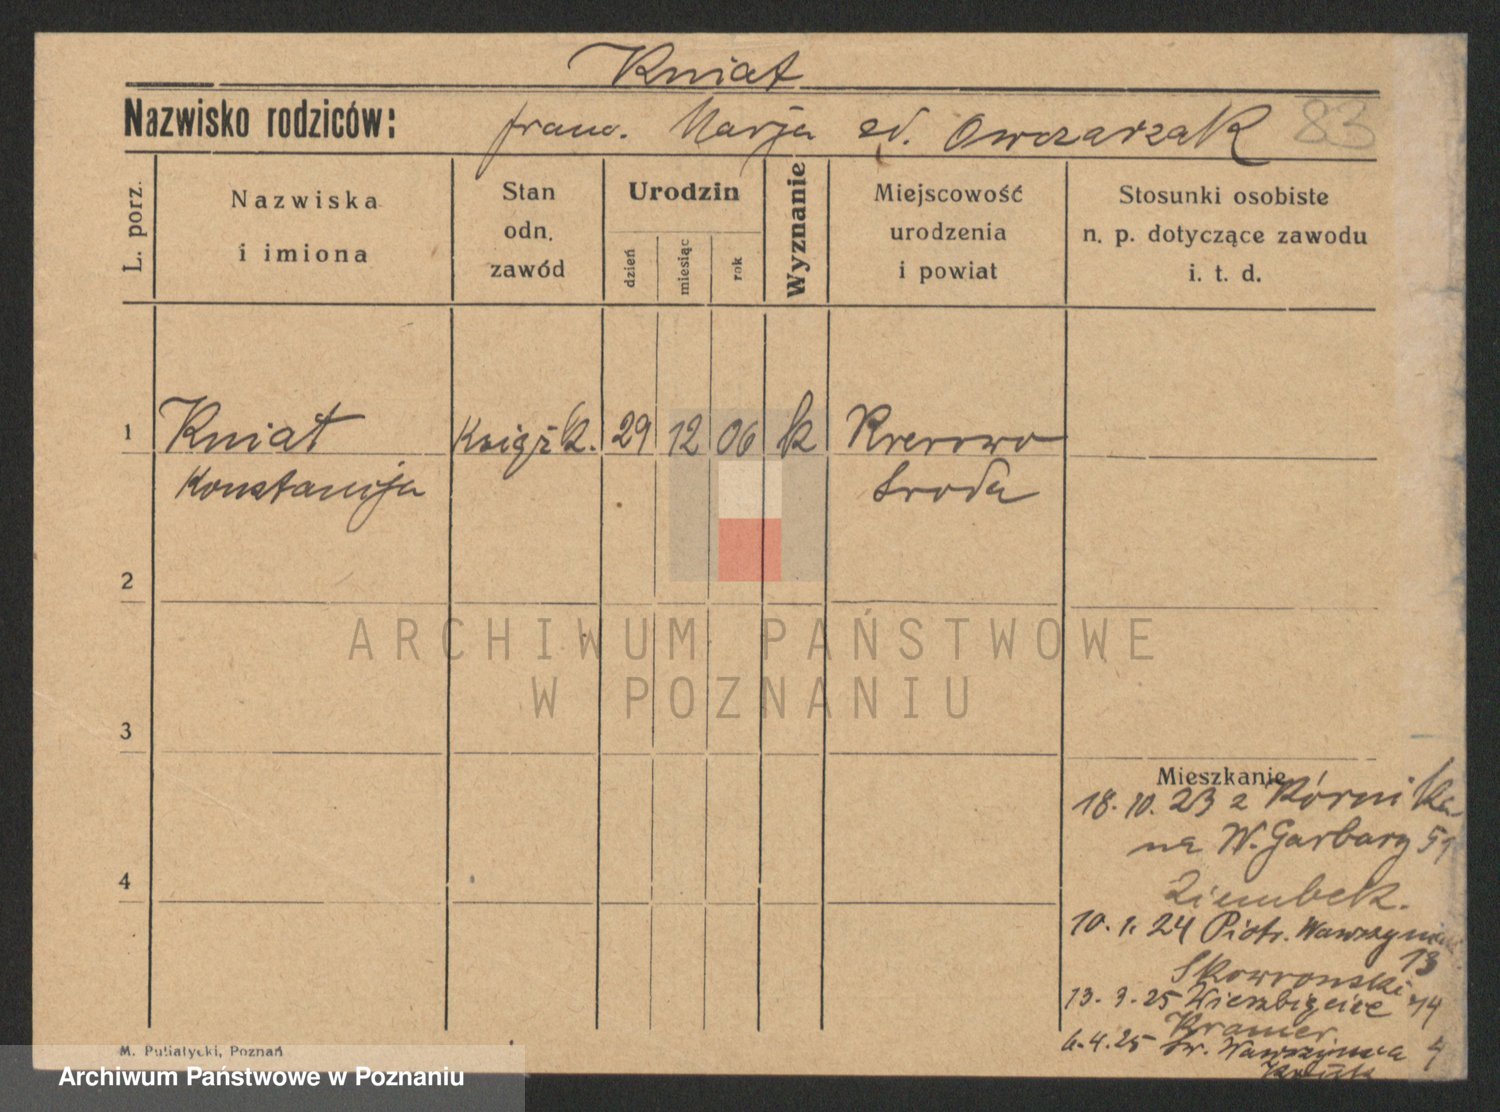 Kniat
Nazwisko rodziców: franc. Marja zd. Owczarzak 83
L. porz.
Nazwiska
i imiona
Stan
odn.
zawód
Urodzin
dzień
miesiąc
rok
Wyznanie
Miejscowość
urodzenia
i powiat
Stosunki osobiste
n. p. dotyczące zawodu
i. t. d.
1 Kniat Książk. 29 12 06 k Krerowo
Konstancja Sroda
2
3
4
Mieszkanie
18. 10. 23 z Kórnika
na W. Garbary 51
Ziembek.
10. 1. 24 Piotr. Wawrzyniaka
13
Skowronski
13. 3. 25 Wierzbięcice 14
Kramer
6. 4. 25 św. Wawrzyńca 4
M. Putiatycki, Poznań
ARCHIWUM PAŃSTWOWE
W POZNANIU
Archiwum Państwowe w Poznaniu